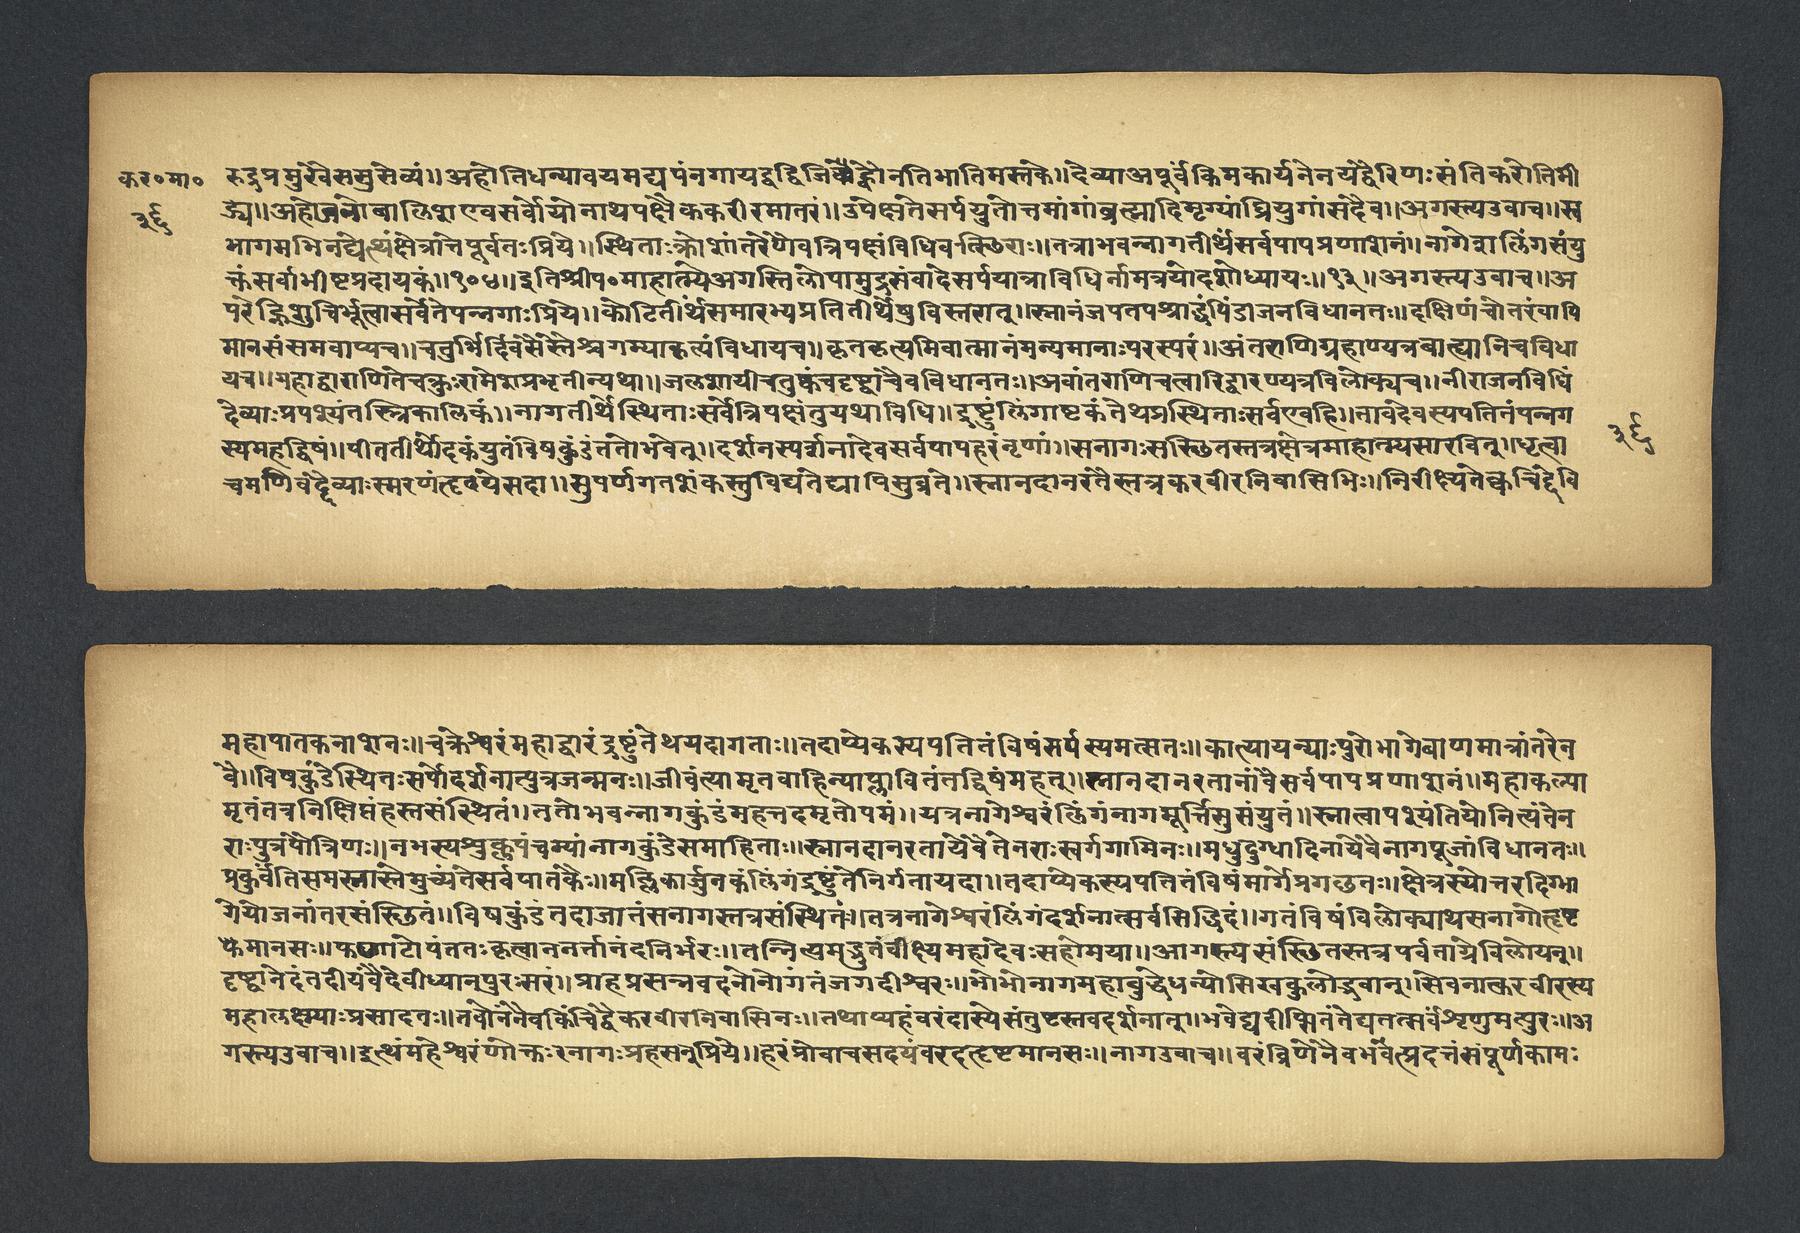 कर॰मा॰
३६
रुद्रप्रमुखैससुसेव्यं॥अहोतिधन्यावयमद्यपंनगायद्वद्विजिव्हेनतिभातिमस्तके॥देव्याअपूर्वंकिमकार्यनेनयद्वैरिणःसंतिकरोतिमी
ड्ये॥अहोजनोबालिशएवसर्वोयोनाथपक्षैककरीरमातरं॥उपेक्षतेसर्पयुतोत्तमांगांब्रह्मादिमृग्यांघ्रियुगांसदैव॥अगस्त्यउवाच॥स्व
भागमभिनंद्येत्थंक्षेत्रांतेपूर्वतःप्रिये॥स्थिताःक्रोशांतरेणैवत्रिपक्षंविधिवत्स्थिराः॥तत्राभवन्नागतीर्थंसर्वपापप्रणाशनं॥नागेशलिंगसंयु
क्तंसर्वाभीष्टप्रदायकं॥१०४॥इतिश्रीप॰माहात्म्येअगस्तिलोपामुद्रसंवादेसर्पयात्राविधिर्नामत्रयोदशोध्यायः॥१३॥अगस्त्यउवाच॥अ
परेह्निशुचिर्भूत्वासर्वेतेपन्नगाःप्रिये॥कोटितीर्थंसमारभ्यप्रतितीर्थेषुविस्तरात्॥स्नानंजपतपश्राद्धंपिंडाजनविधानतः॥दक्षिणंचोत्तरंवापि
मानसंसमवाप्यच॥चतुर्भिर्दिवसैस्तैश्चगम्याकृत्यंविधायच॥कृतकृत्यमिवात्मानंमन्यमानाःपरस्परं॥अंतराणिग्रहाण्यत्रबाह्यानिचविधा
यच॥महाद्वाराणितेचक्रुःरामेशप्रभृतीन्यथा॥जलशायीचतुष्कंचदृष्ट्वाचैवविधानतः॥अवांतराणिचत्वारिद्वाराण्यत्रविलोक्यच॥नीराजनविधिं
देव्याःप्रपश्यंतस्त्रिकालिकं॥नागतीर्थेस्थिताःसर्वेत्रिपक्षंतुयथाविधि॥द्रष्टुंलिंगाष्टकंतेथप्रस्थिताःसर्वएवहि॥तावदेवस्यपतितंपन्नग
स्यमहद्विषं॥पीततीर्थोदकंयुतंविषकुंडंततोभवेत्॥दर्शनस्पर्शनादेवसर्वपापहरंनृणां॥सनागःसस्थितस्तत्रक्षेत्रमाहात्म्यसारवित्॥धृत्वा
३६
चमणिवद्देव्याःस्मरणंहृदयेसदा॥सुपर्णगतशंकस्तुविद्यतेद्यापिसुव्रते॥स्नानदानरतैस्तत्रकरवीरनिवासिभिः॥निरीक्ष्यतेक्वचिद्देवि
महापातकनाशनः॥चक्रेश्वरंमहाद्वारंद्रष्टुंतेथयदागताः॥तदाप्येकस्यपतितंविषंसर्पस्यमत्सतः॥कात्यायन्याःपुरोभागेबाणमात्रांतरेन
वै॥विषकुंडेस्थितःसर्पोदर्शनात्पुत्रजन्मनः॥जीवंत्यामृतवाहिन्याप्लावितंतद्विषंमहत्॥स्नानदानरतानांवैसर्वपापप्रणाशनं॥महाकल्पा
मृतंतत्रनिक्षिप्तंहस्तसंस्थितं॥ततोभवन्नागकुंडंमहत्तदमृतोपमं॥यत्रनागेश्वरंलिंगंनागमूर्त्तिसुसंयुतं॥स्नात्वापश्यंतियोनित्यंतेन
राःपुत्रपौत्रिणः॥नभस्यशुक्लपंचम्यांनागकुंडेसमाहिताः॥स्नानदानरतायेवैतेनराःस्वर्गगामिनः॥मधुदुग्धादिनायेवैनागपूजांविधानतः॥
प्रकुर्वंतिसमस्तास्तेमुच्यंतेसर्वपातकैः॥मल्लिकार्जुनकंलिंगंद्रष्टुंतेनिर्गतायदा॥तदाप्येकस्यपतितंविषंमार्गेप्रगछतः॥क्षेत्रस्योत्तरदिग्भा
गेयोजनांतरसंस्थितं॥विषकुंडंतदाजातंसनागस्तत्रसंस्थितः॥तत्रनागेश्वरंलिंगंदर्शनात्सर्वसिद्धिदं॥गतंविषंविलोक्याथसनागोहृष्ट
मानसः॥फणाटोपंततःकृत्वाननर्त्तानंदनिर्भरः॥तन्नित्यमद्भुतंवीक्ष्यमहादेवःसहोमया॥आगत्यसंस्थितस्तत्रपर्वताग्रेविलोयन्॥
दृष्ट्वानेदंतदीयंवैदेवीध्यानपुरःसरं॥प्राहप्रसन्नवदनोनोगंतंजगदीश्वरः॥भोभोनागमहाबुद्धेधन्योसिस्वकुलोद्भवान्॥सेवनात्करवीरस्य
महालक्ष्म्याःप्रसादतः॥तवोनंनैवकिंचिद्वैकरवीरनिवासिनः॥तथाप्यहंवरंदास्येसंतुष्टस्तवदर्शनात्॥भवेद्यदीप्सितंतेद्यतत्सर्वंशृणुमत्पुरः॥अ
गस्त्यउवाच॥इत्थंमहेश्वरंणोक्तःसनागःप्रहसन्प्रिये॥हरंप्रोवाचसदयंवरदहृष्टमानसः॥नागउवाच॥वरंव्रिणेनैवभवेत्प्रदत्तंसंपूर्णकामः